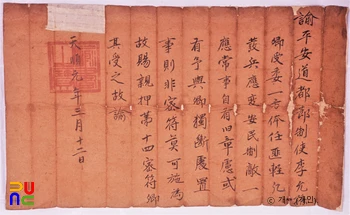 諭平安道都節制使李允
卿受委一方体任匪輕凡
發兵應変安民制敵一
應常事自有旧章慮或
有予與卿獨断處置
事則非密符莫可施為
故賜親押第十四密符卿
其受之故諭
天順元年三月十二日